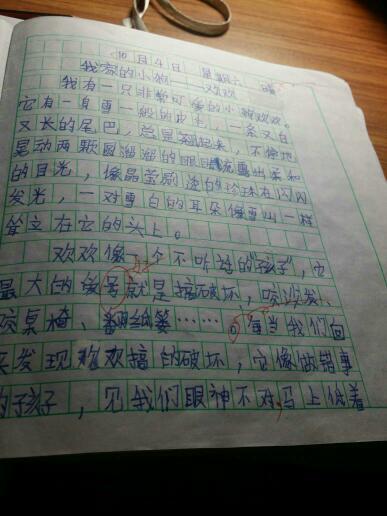 10月4日 星期六 晴
我家的小狗——欢欢
我有一只非常可爱的小狗欢欢。
它有一身雪一般的皮毛,一条又白
又长的尾巴,总是翘起来,不停地
晃动两颗圆溜溜的眼睛露出柔和
的目光,像晶莹剔透的珍珠在闪闪
发光,一对雪白的耳朵像雪山一样
耸立在它的头上。
欢欢像一个不听话的"孩子",它
最大的爱好就是搞破坏,咬沙发、
咬桌椅、翻纸篓……每当我们回
来发现欢欢搞的破坏,它像做错事
的孩子,见我们眼神不对,马上低着